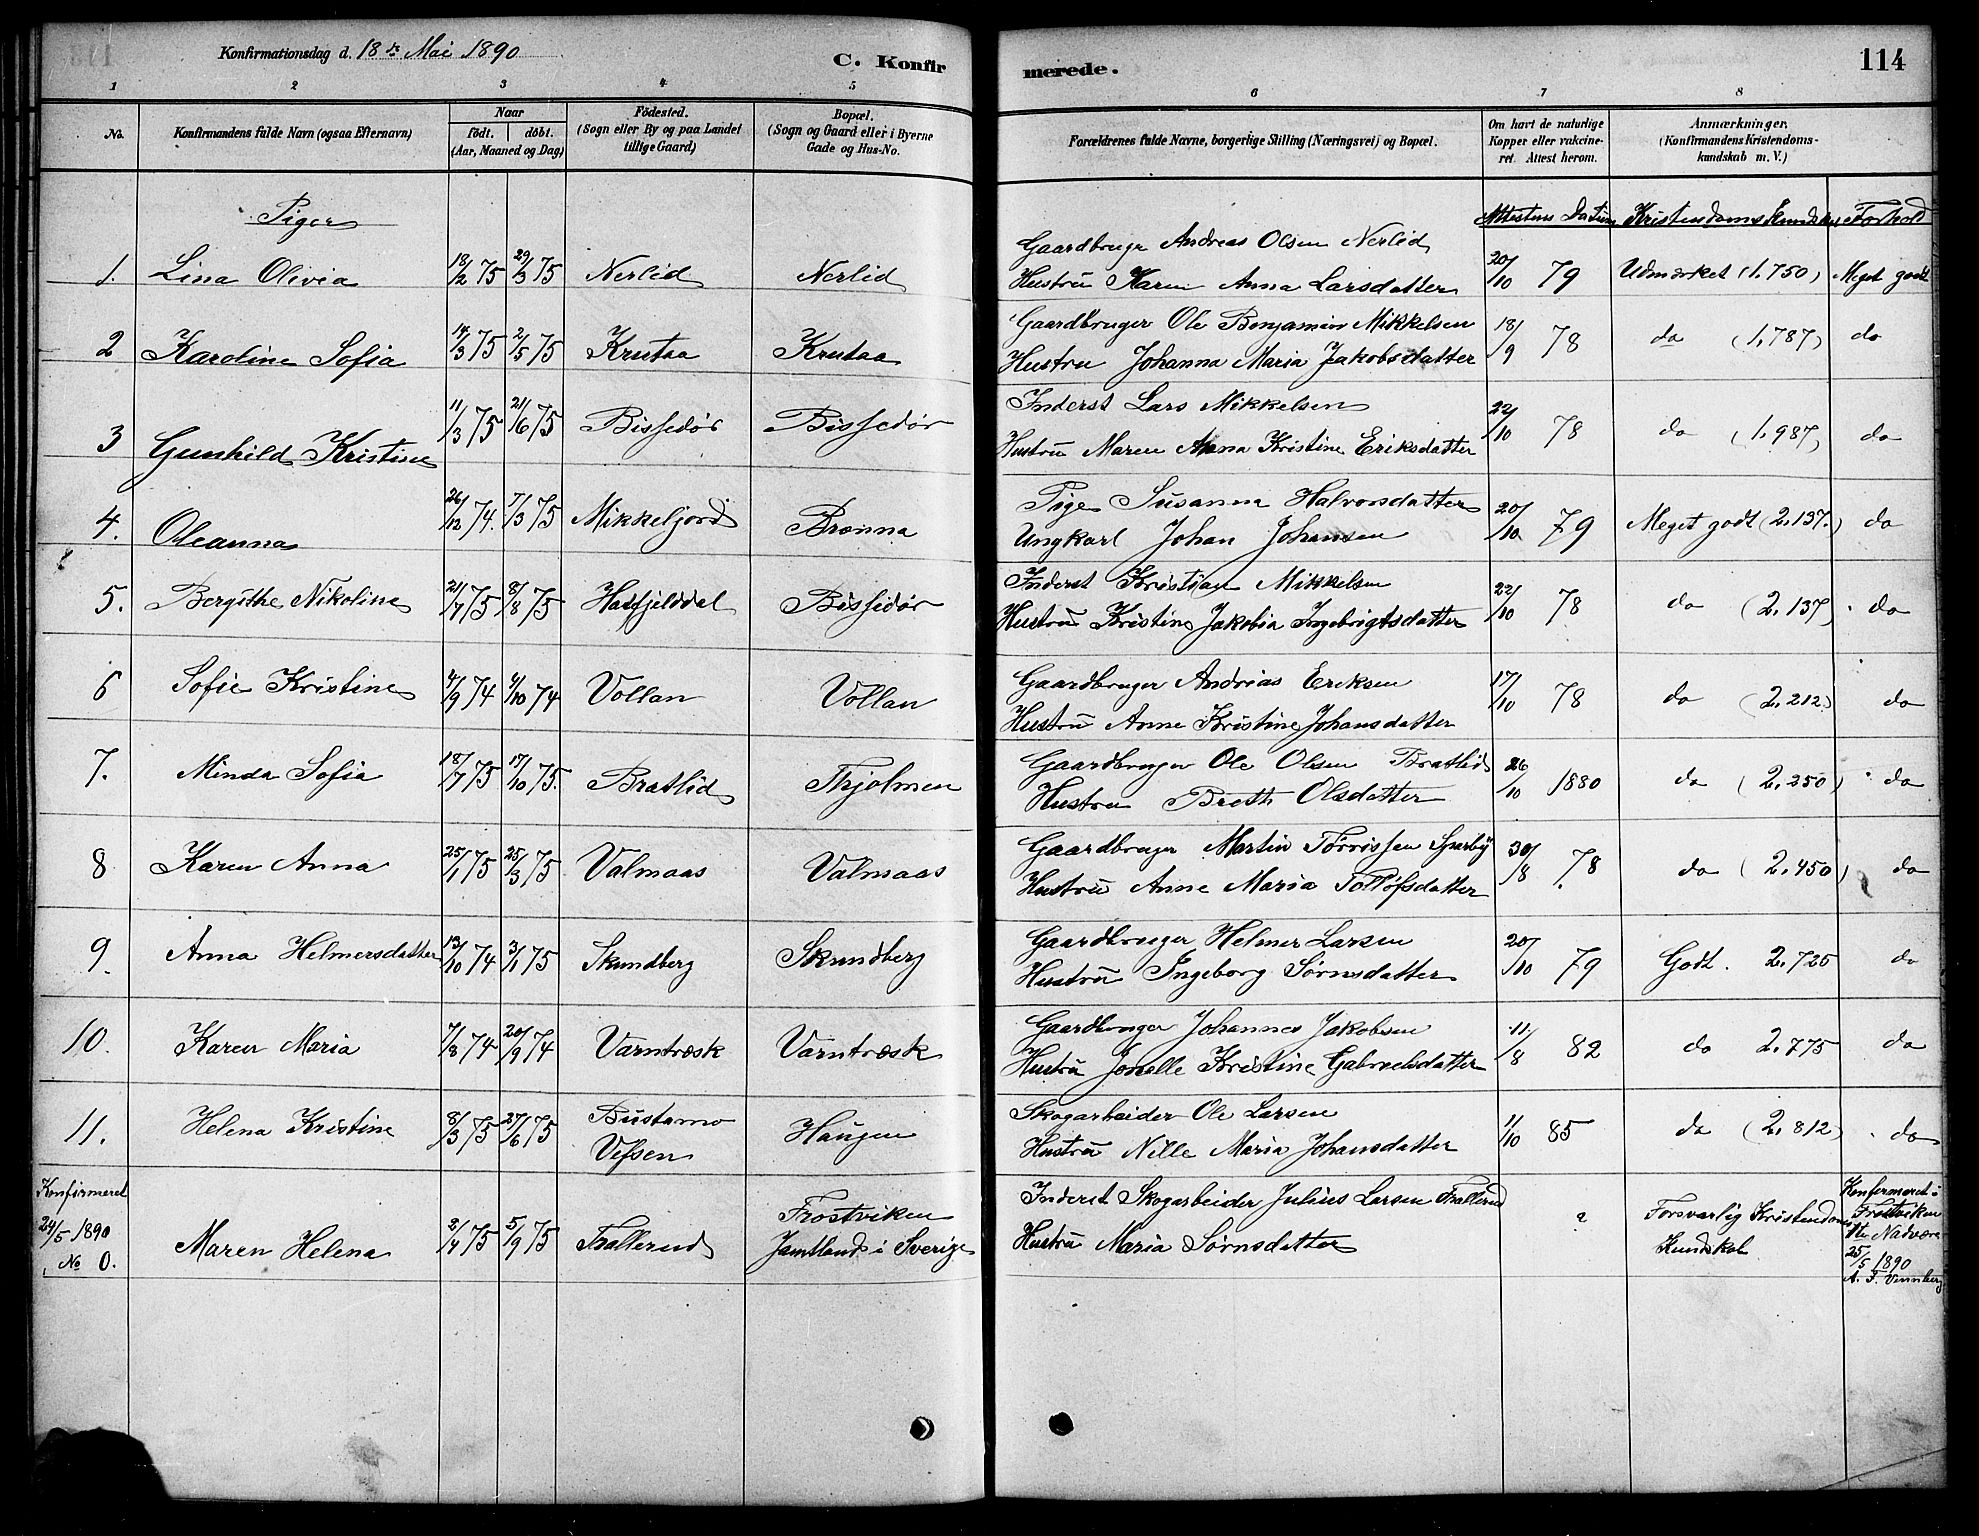 Konfirmationsdag d. 18de Mai 1890
C. Konfirmerede.
114
1 2 3 4 5 6 7 8
No.
Konfirmandens fulde Navn (ogsaa Efternavn)
Naar
födt. döbt.
(Aar, Maaned og Dag)
Födested.
(Sogn eller By og paa Landet
tillige Gaard)
Bopæl.
(Sogn og Gaard eller i Byerne
Gade og Hus-No.
Forældrenes fulde Navne, borgerlige Stilling (Næringsvei) og Bopæl.
Om havt de naturlige
Kopper eller vakcine-
ret. Attest herom.
Anmærkninger.
(Konfirmandens Kristendoms-
kundskab m. V.)
Piger
Attestens Datum Kristendomskundskab Forhold
1. Lina Olivia 18/2 75 29/3 75 Nerlid Nerlid Gaardbruger Andreas Olsen Nerlid
Hustru Karen Anna Larsdatter 20/10 79 Udmærket (1.750) Meget godt
2 Karoline Sofia 14/3 75 2/5 75 Krutaa Krutaa Gaardbruger Ole Benjamin Mikkelsen
Hustru Johanna Maria Jakobsdatter 18/9 78 do (1.787) do
3 Gunhild Kristine 11/3 75 21/6 75 Bissedör Bissedör Inderst Lars Mikkelsen
Hustru Maren Anna Kristine Eriksdatter 22/10 78 do (1.987) do
4. Oleanna 26/12 74. 7/3 75 Mikkeljord Brønna Pige Susanna Halvorsdatter
Ungkarl Johan Johansen 20/10 79 Meget godt (2.137.) do
5. Bergithe Nikoline 21/7 75 8/8 75 Hatfjelddal Bissedör Inderst Kristian Mikkelsen
Hustru Kristine Jakobia Ingebrigtsdatter 22/10 78 do (2.137) do
6 Sofie Kristine 4/9 74 4/10 74 Vollan Vollan Gaardbruger Andrias Eriksen
Hustru Anne Kristine Johansdatter 17/10 78 do (2.212.) do
7. Minda Sofia 18/7 75 17/10 75. Bratlid Thjolmen Gaardbruger Ole Olsen Bratlid
Hustru Breth Olsdatter 26/10 1880 do (2.250) do
8 Karen Anna 25/1 75 25/3 75 Valmaas Valmaas Gaardbruger Martin Torrissen Sparby
Hustru Anne Maria Tollöfsdatter 30/8 78 do (2.450) do
9. Anna Helmersdatter 13/10 74 3/1 75 Skundberg Skundberg Gaardbruger Helmer Larsen
Hustru Ingeborg Sørnsdatter 20/10 79 Godt. 2.725 do
10. Karen Maria 7/8 74 20/9 74 Varntræsk Varntræsk Gaardbruger Johannes Jakobsen
Hustru Jonelle Kristine Gabrielsdatter 11/8 82 do 2.775 do
11. Helena Kristine 8/3 75 27/6 75 Bustamo
Vefsen Haugen Skogarbeider Ole Larsen
Hustru Nille Maria Johansdatter 1/10 85 do (2.812) do
Konfirmeret
24/5 1890
No 0. Maren Helena 2/4 75 5/9 75 Trallerud Frostviken
Jamtland i Sverige Inderst Skogarbeider Julius Larsen Trallerud
Hustru Maria Sørnsdatter ? Forsvarlig Kristendoms
Kundskab Konfirmeret i
Frostviken
Nadvere
25/5 1890
A. F. Vennberg